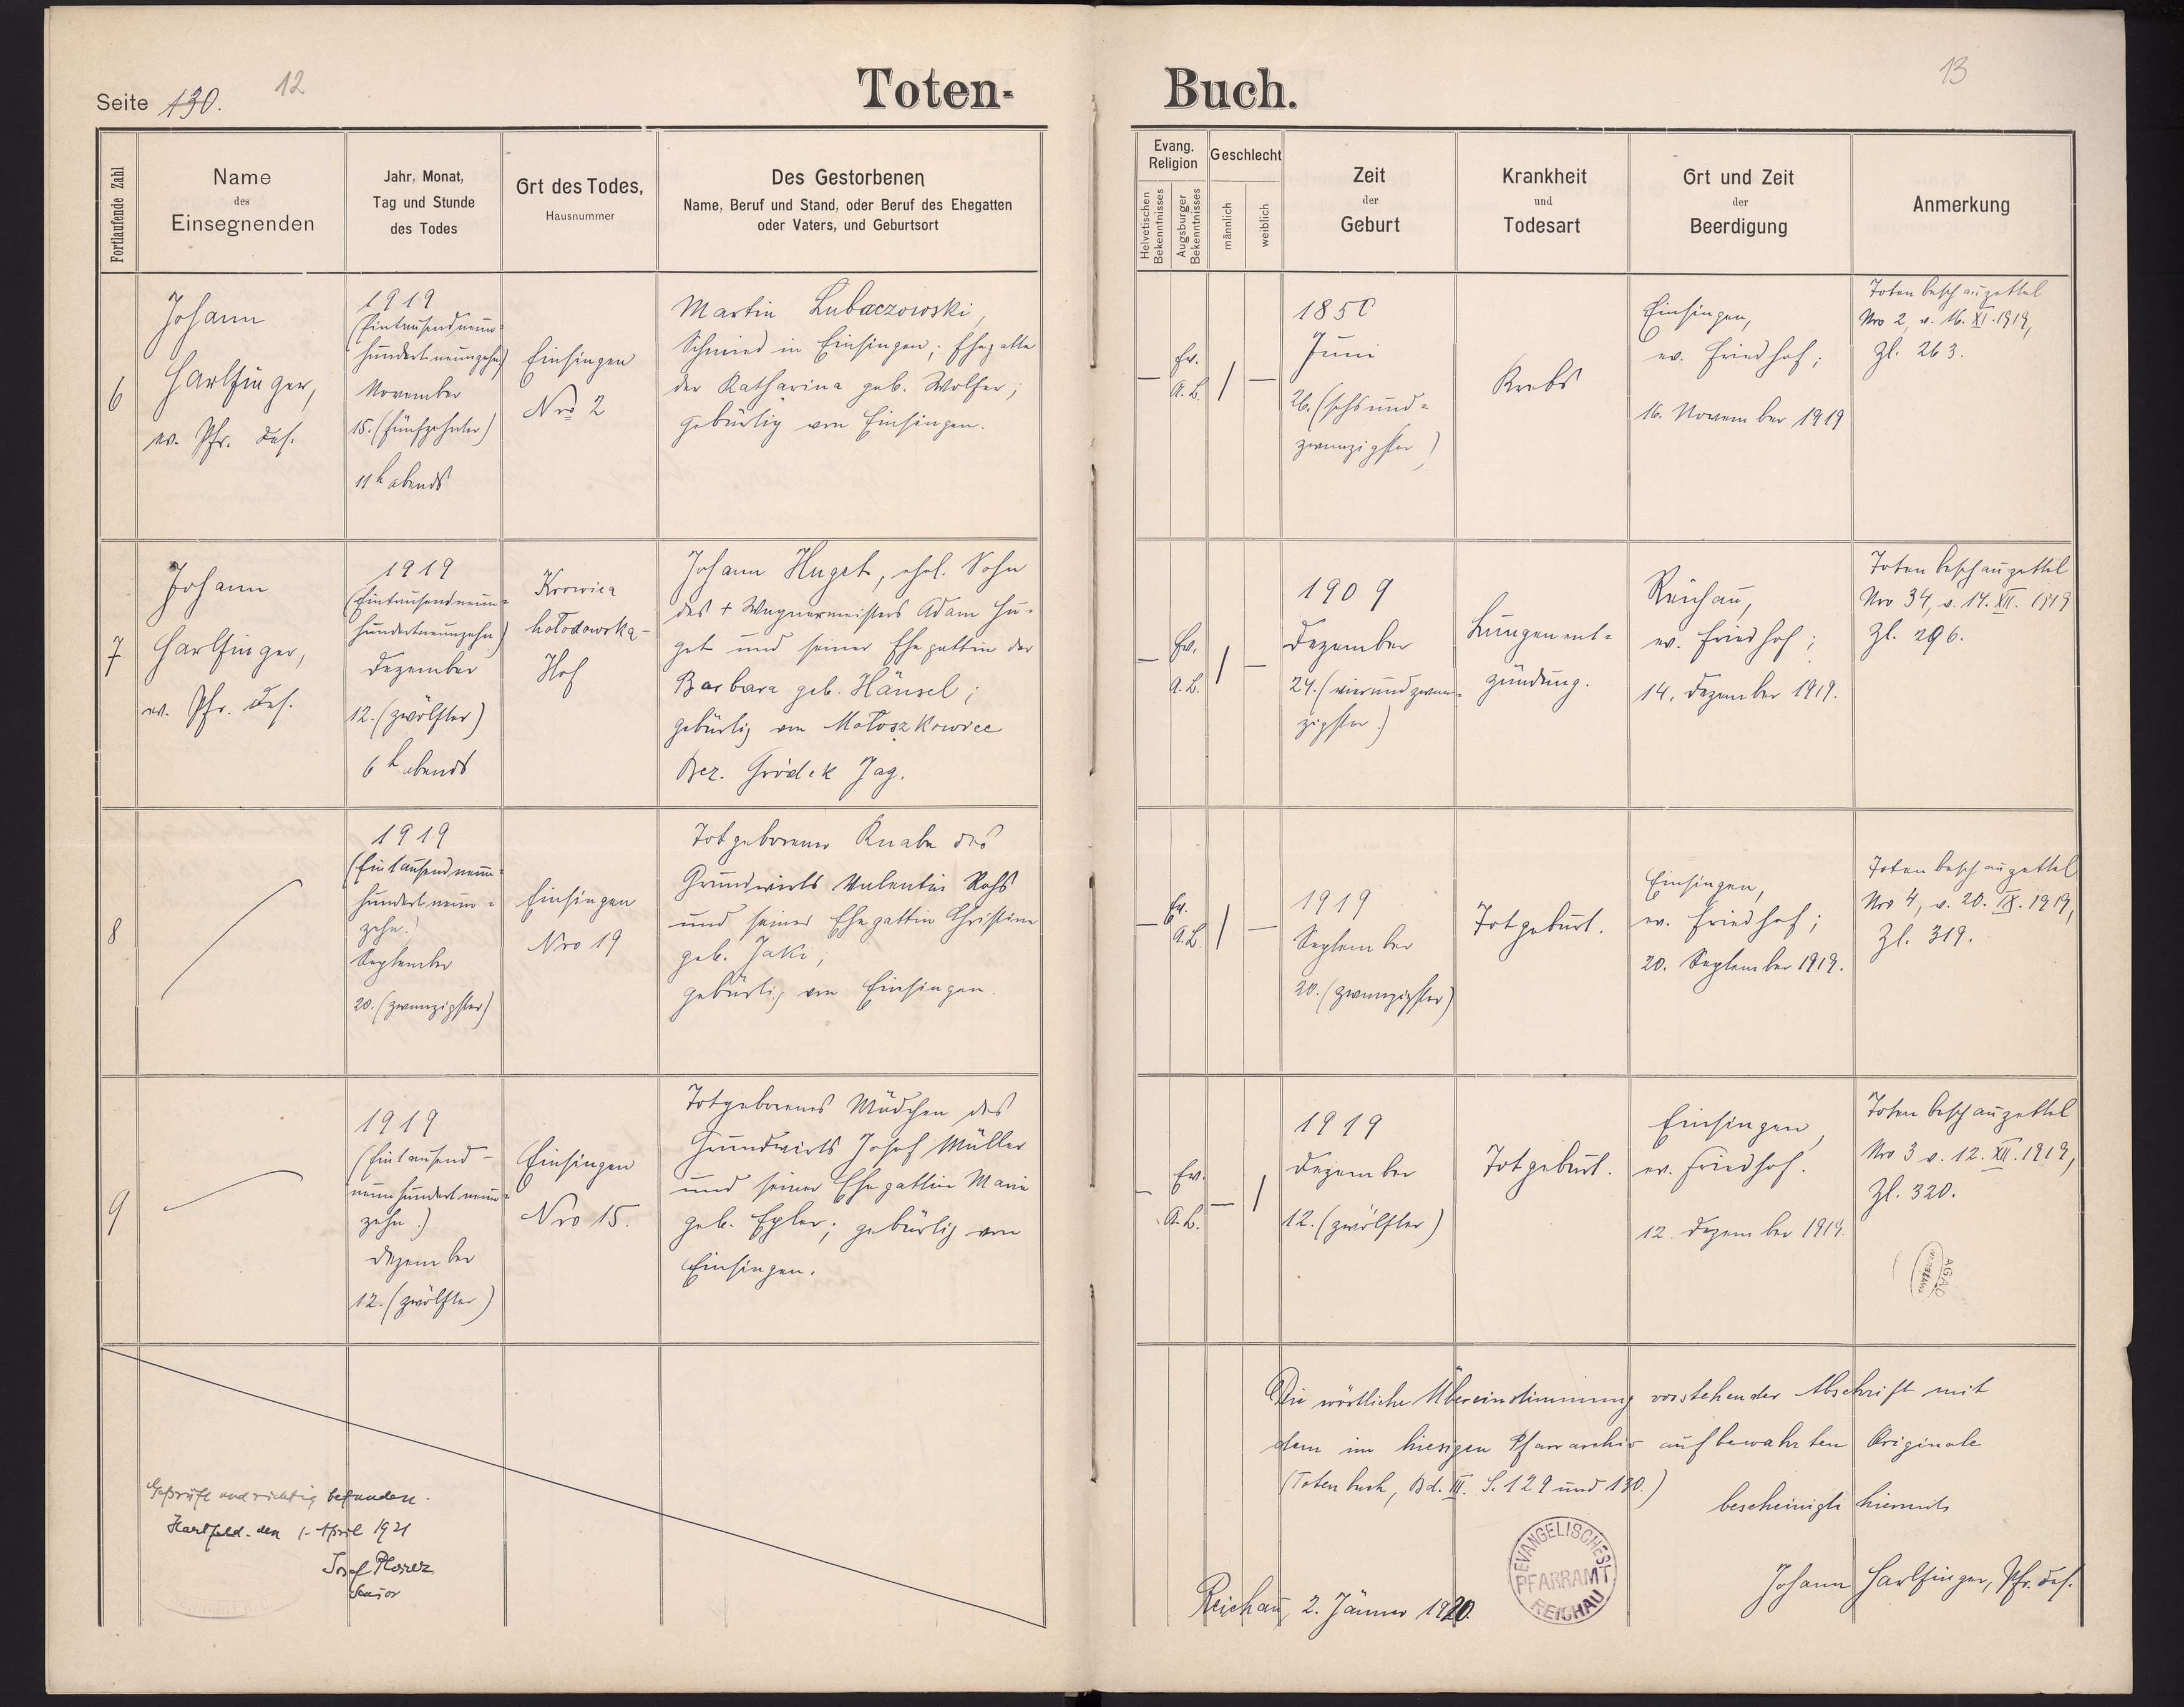 Seite 130.
12
Toten-
Buch.
13
Fortlaufende Zahl
Name
des
Einsegnenden
Jahr, Monat,
Tag und Stunde
des Todes
Ort des Todes,
Hausnummer
Des Gestorbenen
Name, Beruf und Stand, oder Beruf des Ehegatten
oder Vaters, und Geburtsort
Evang.
Religion
Helvetischen
Bekenntnisses
Augsburger
Bekenntnisses
Geschlecht
männlich
weiblich
Zeit
der
Geburt
Krankheit
und
Todesart
Ort und Zeit
der
Beerdigung
Anmerkung
6
Johann
Harlfinger,
ev. Pfr. des.
1919
(Eintausendneun-
hundertneunzehn)
November
15. (fünfzehnter)
11h abends
Einsingen
Nro 2
Martin Lubaczowski,
Schmied in Einsingen; Ehegatte
der Katharina geb. Wolfer;
gebürtig von Einsingen.
—
Ev.
A.B.
/
—
1850
Juni
26. (sechsund-
zwanzigster)
Krebs
Einsingen,
ev. Friedhof;
16. November 1919
Totenbeschauzettel
Nro 2, v. 16. XI. 1919,
Zl. 263.
7
Johann
Harlfinger,
ev. Pfr. des.
1919
(Eintausendneun-
hundertneunzehn)
Dezember
12. (zwölfter)
6h abends
Krowica
hołodowska-
Hof
Johann Huget, ehel. Sohn
des + Wagnermeisters Adam Hu-
get und seiner Ehegattin der
Barbara geb. Hänsel;
gebürtig von Małoszkowice
Bez. Gródek Jag.
—
Ev.
A.B.
/
—
1909
Dezember
24. (vierundzwan-
zigster)
Lungenent-
zündung.
Reichau,
ev. Friedhof;
14. Dezember 1919.
Totenbeschauzettel
Nro 34, v. 14. XII. 1919
Zl. 296.
8
1919
(Eintausendneun-
hundertneun-
zehn)
September
20. (zwanzigster)
Einsingen
Nro 19
Totgeborener Knabe des
Grundwirts Valentin Rohs
und seiner Ehegattin Christine
geb. Jaki;
gebürtig von Einsingen.
—
Ev.
A.B.
/
—
1919
September
20. (zwanzigster)
Totgeburt.
Einsingen,
ev. Friedhof;
20. September 1919.
Totenbeschauzettel
Nro 4, v. 20. IX. 1919,
Zl. 319.
9
1919
(Eintausend-
neunhundertneun-
zehn)
Dezember
12. (zwölfter)
Einsingen
Nro 15.
Totgeborenes Mädchen des
Grundwirts Josef Müller
und seiner Ehegattin Marie
geb. Egler; gebürtig von
Einsingen.
—
Ev.
A.B.
—
/
1919
Dezember
12. (zwölfter)
Totgeburt.
Einsingen,
ev. Friedhof.
12. Dezember 1919.
Totenbeschauzettel
Nro 3 v. 12. XII. 1919,
Zl. 320.
AGAD
Geprüft und richtig befunden.
Hartfeld. den 1. April 1921
Josef
Senior
Die wörtliche Übereinstimmung vorstehender Abschrift mit
dem im hiesigen Pfarrarchiv aufbewahrten Originale
(Totenbuch, Bd. III. S. 129 und 130.)
bescheinigt hiermit
EVANGELISCHES
PFARRAMT
REICHAU
Johann Harlfinger, Pfr. des.
Reichau, 2. Jänner 1920.